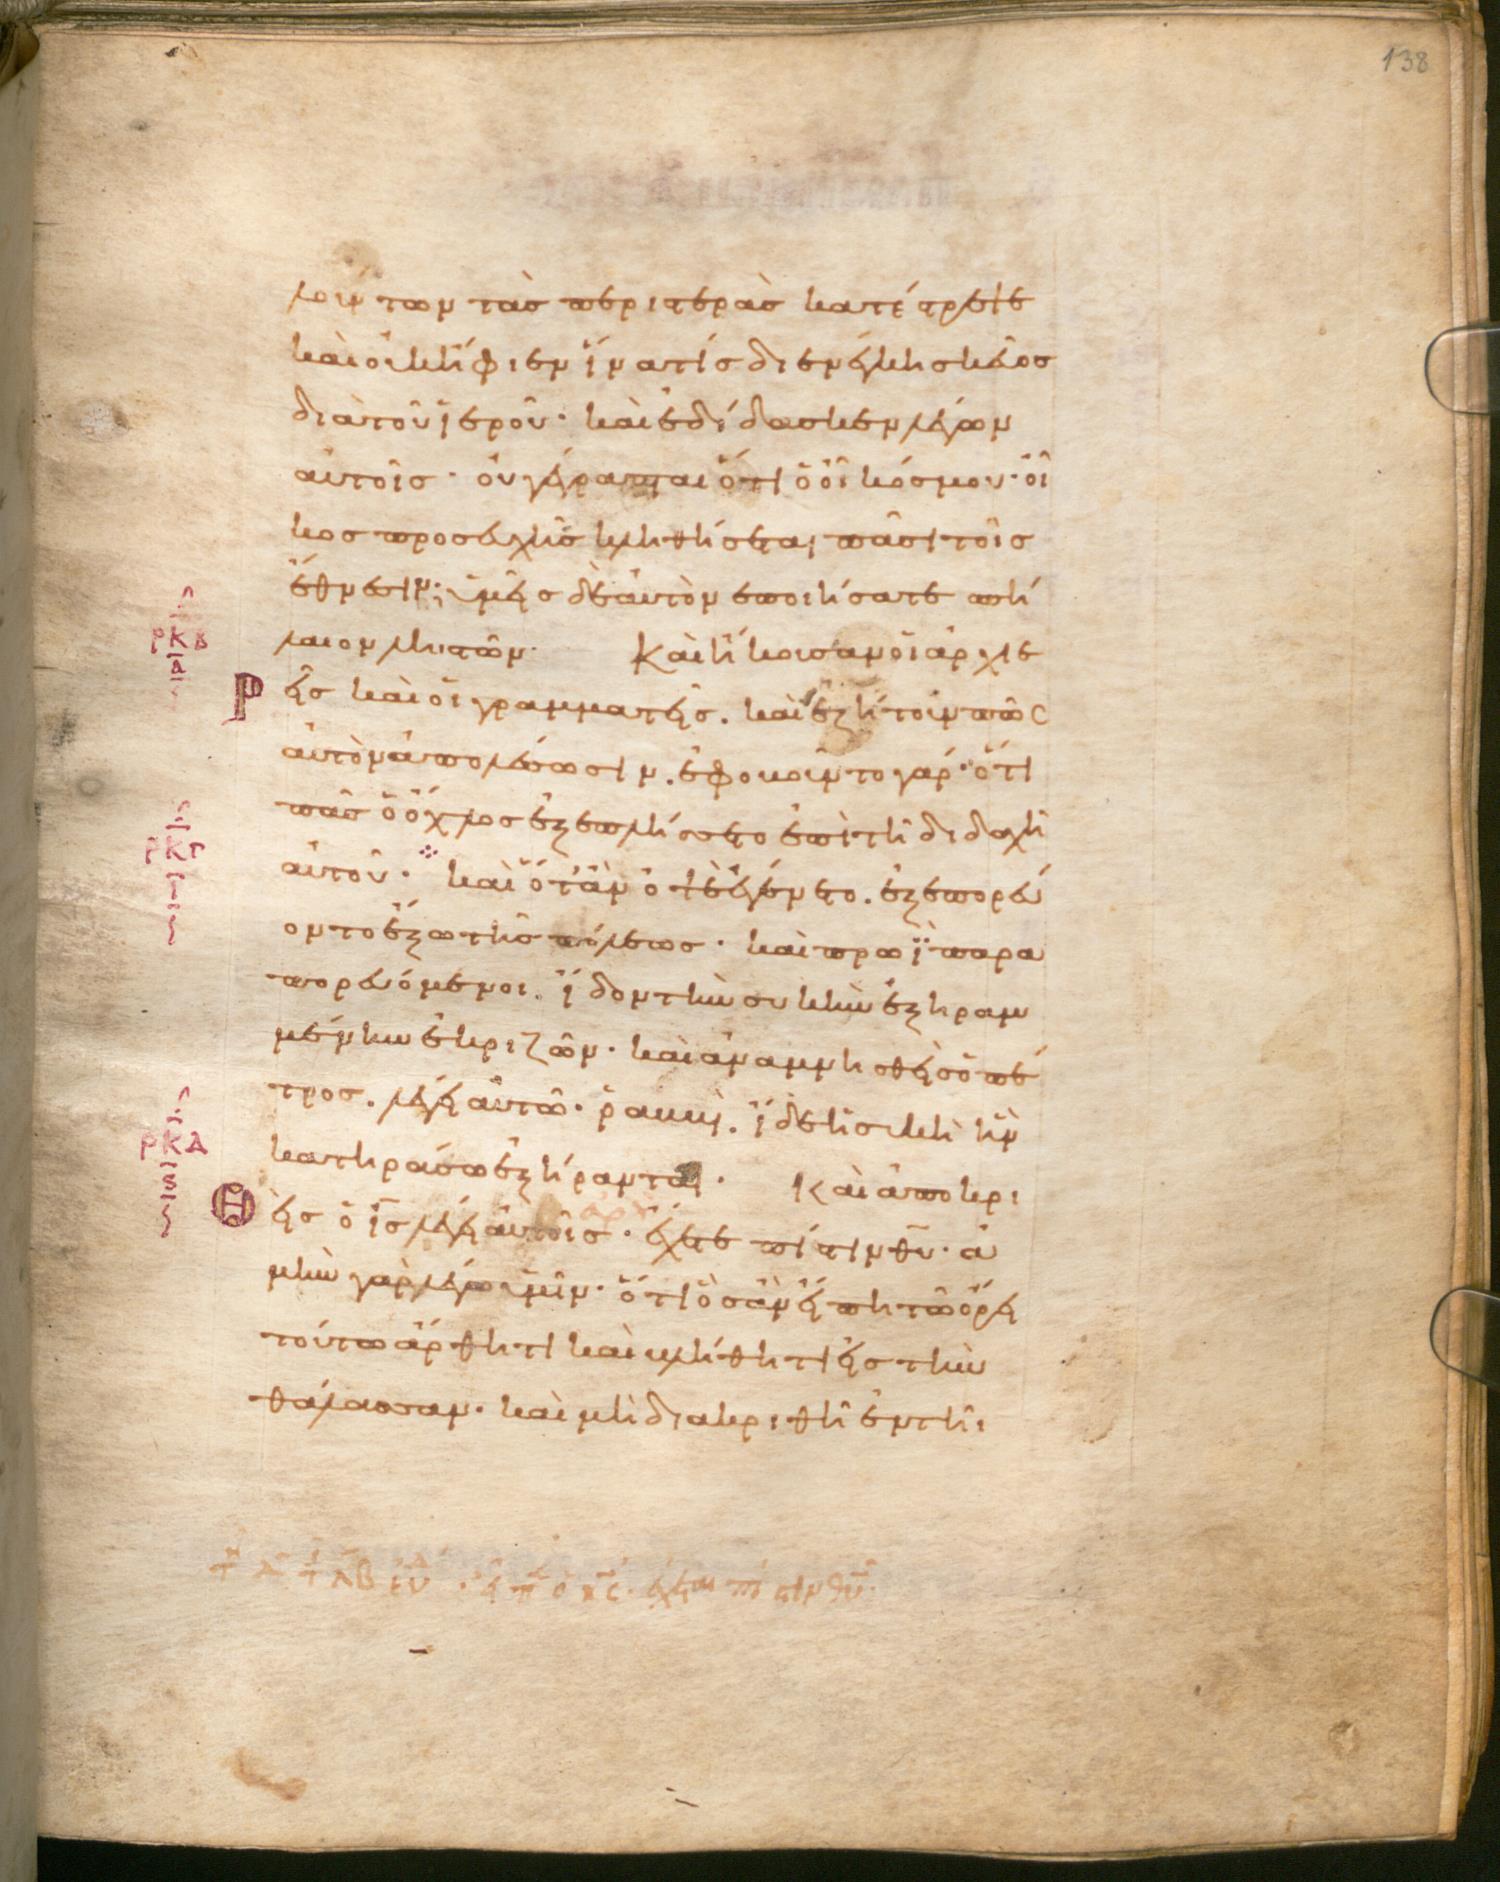 138
λούντων τὰς περιστερὰς κατέστρεψε
καὶ οὐκ ἤφιεν ἵνα τίς διενέγκη σκεῦος
διὰ τοῦ ἱεροῦ· καὶ ἐδίδασκεν λέγων
αὐτοῖς· οὐ γέγραπται ὅτι ὁ οἶκός μου· οἶ
κος προσευχῆς κληθήσεται πᾶσι τοῖς
ἔθνεσιν; ὑμεῖς δὲ αὐτὸν ἐποιήσατε σπή
ΡΚΒ
Α
λαιον ληστῶν· Καὶ ἤκουσαν οἱ ἀρχιε
Ρεῖς καὶ οἱ γραμματεῖς. καὶ ἐζήτουν πῶς
αὐτὸν ἀπολέσωσιν. ἐφοβοῦντο γάρ· ὅτι
πᾶς ὁ ὄχλος ἐξεπλήσσετο ἐπὶ τῆ διδαχῆ
ΡΚΓ
Ι
αὐτοῦ· καὶ ὅτἂν ὀψὲ ἐγένετο. ἐξεπορεύ
οντο ἔξω τῆς πόλεως· καὶ πρωῒ παρα
πορευόμενοι. ἴδον τὴν συκὴν ἐξηραμ
μένην ἐκ ριζῶν· καὶ ἀναμνησθεὶς ὁ πέ
τρος. λέγει αὐτῶ· ῥαββί. ἴδε ἡ συκὴ ἣν
ΡΚΔ
ς
κατηράσω ἐξήρανται· Καὶ ἀποκρι
αρχ
Θεὶς ὁ ι̅ς̅ λέγει αὐτοῖς· ἔχετε πίστιν θ̅υ̅· ἀ
μὴν γὰρ λέγω ὑμῖν· ὅτι ὃς ἂν εἴπη τῶ ὄρει
τούτω ἄρθητι καὶ βλήθητι εἰς τὴν
θάλασσαν· καὶ μὴ διακριθῆ ἐν τῆι
εἶπ ὁ κ̅ς̅· ἔχεται πίστιν θ̅υ̅·